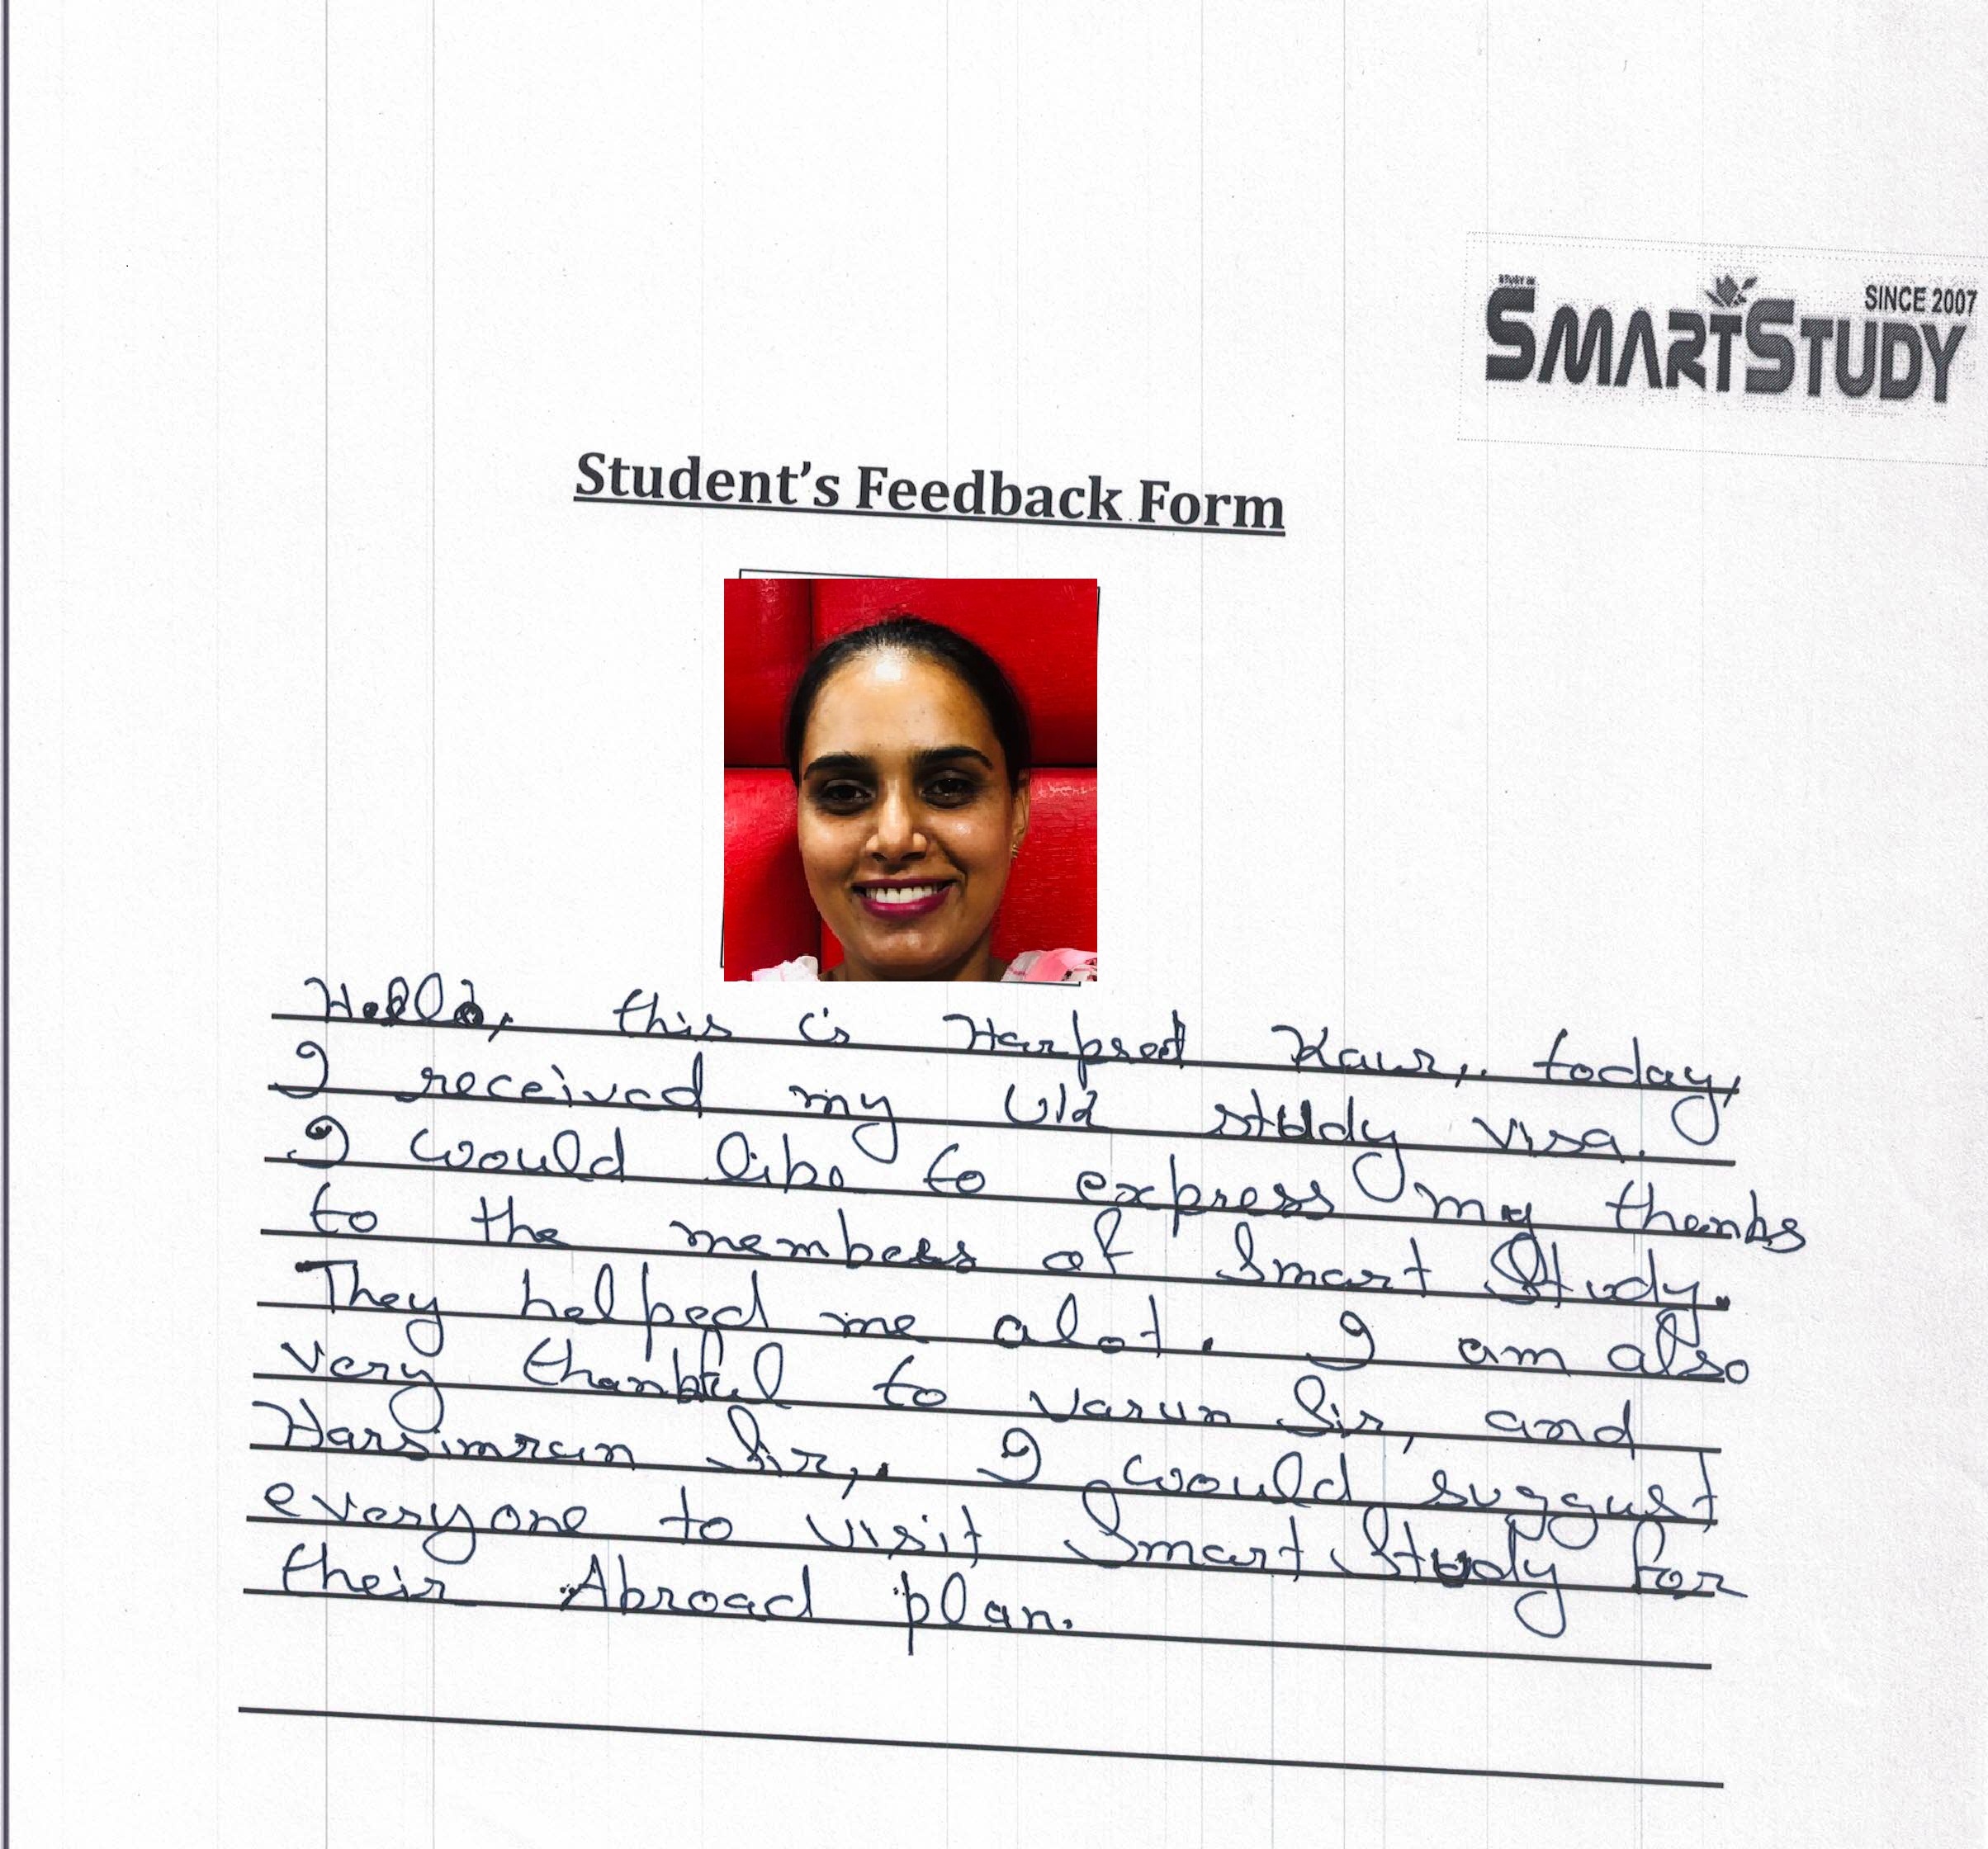 STUDY IN
SMARTSTUDY
SINCE 2007
Student's Feedback Form
Hello, this is Harpreet Kaur,. today,
I received my Uk study visa.
I would like to express my thanks
to the members of Smart Study.
They helped me alot. I am also
very thankful to Varun Sir, and
Harsimran Sir,. I would suggest
everyone to visit Smart Study for
their Abroad plan.